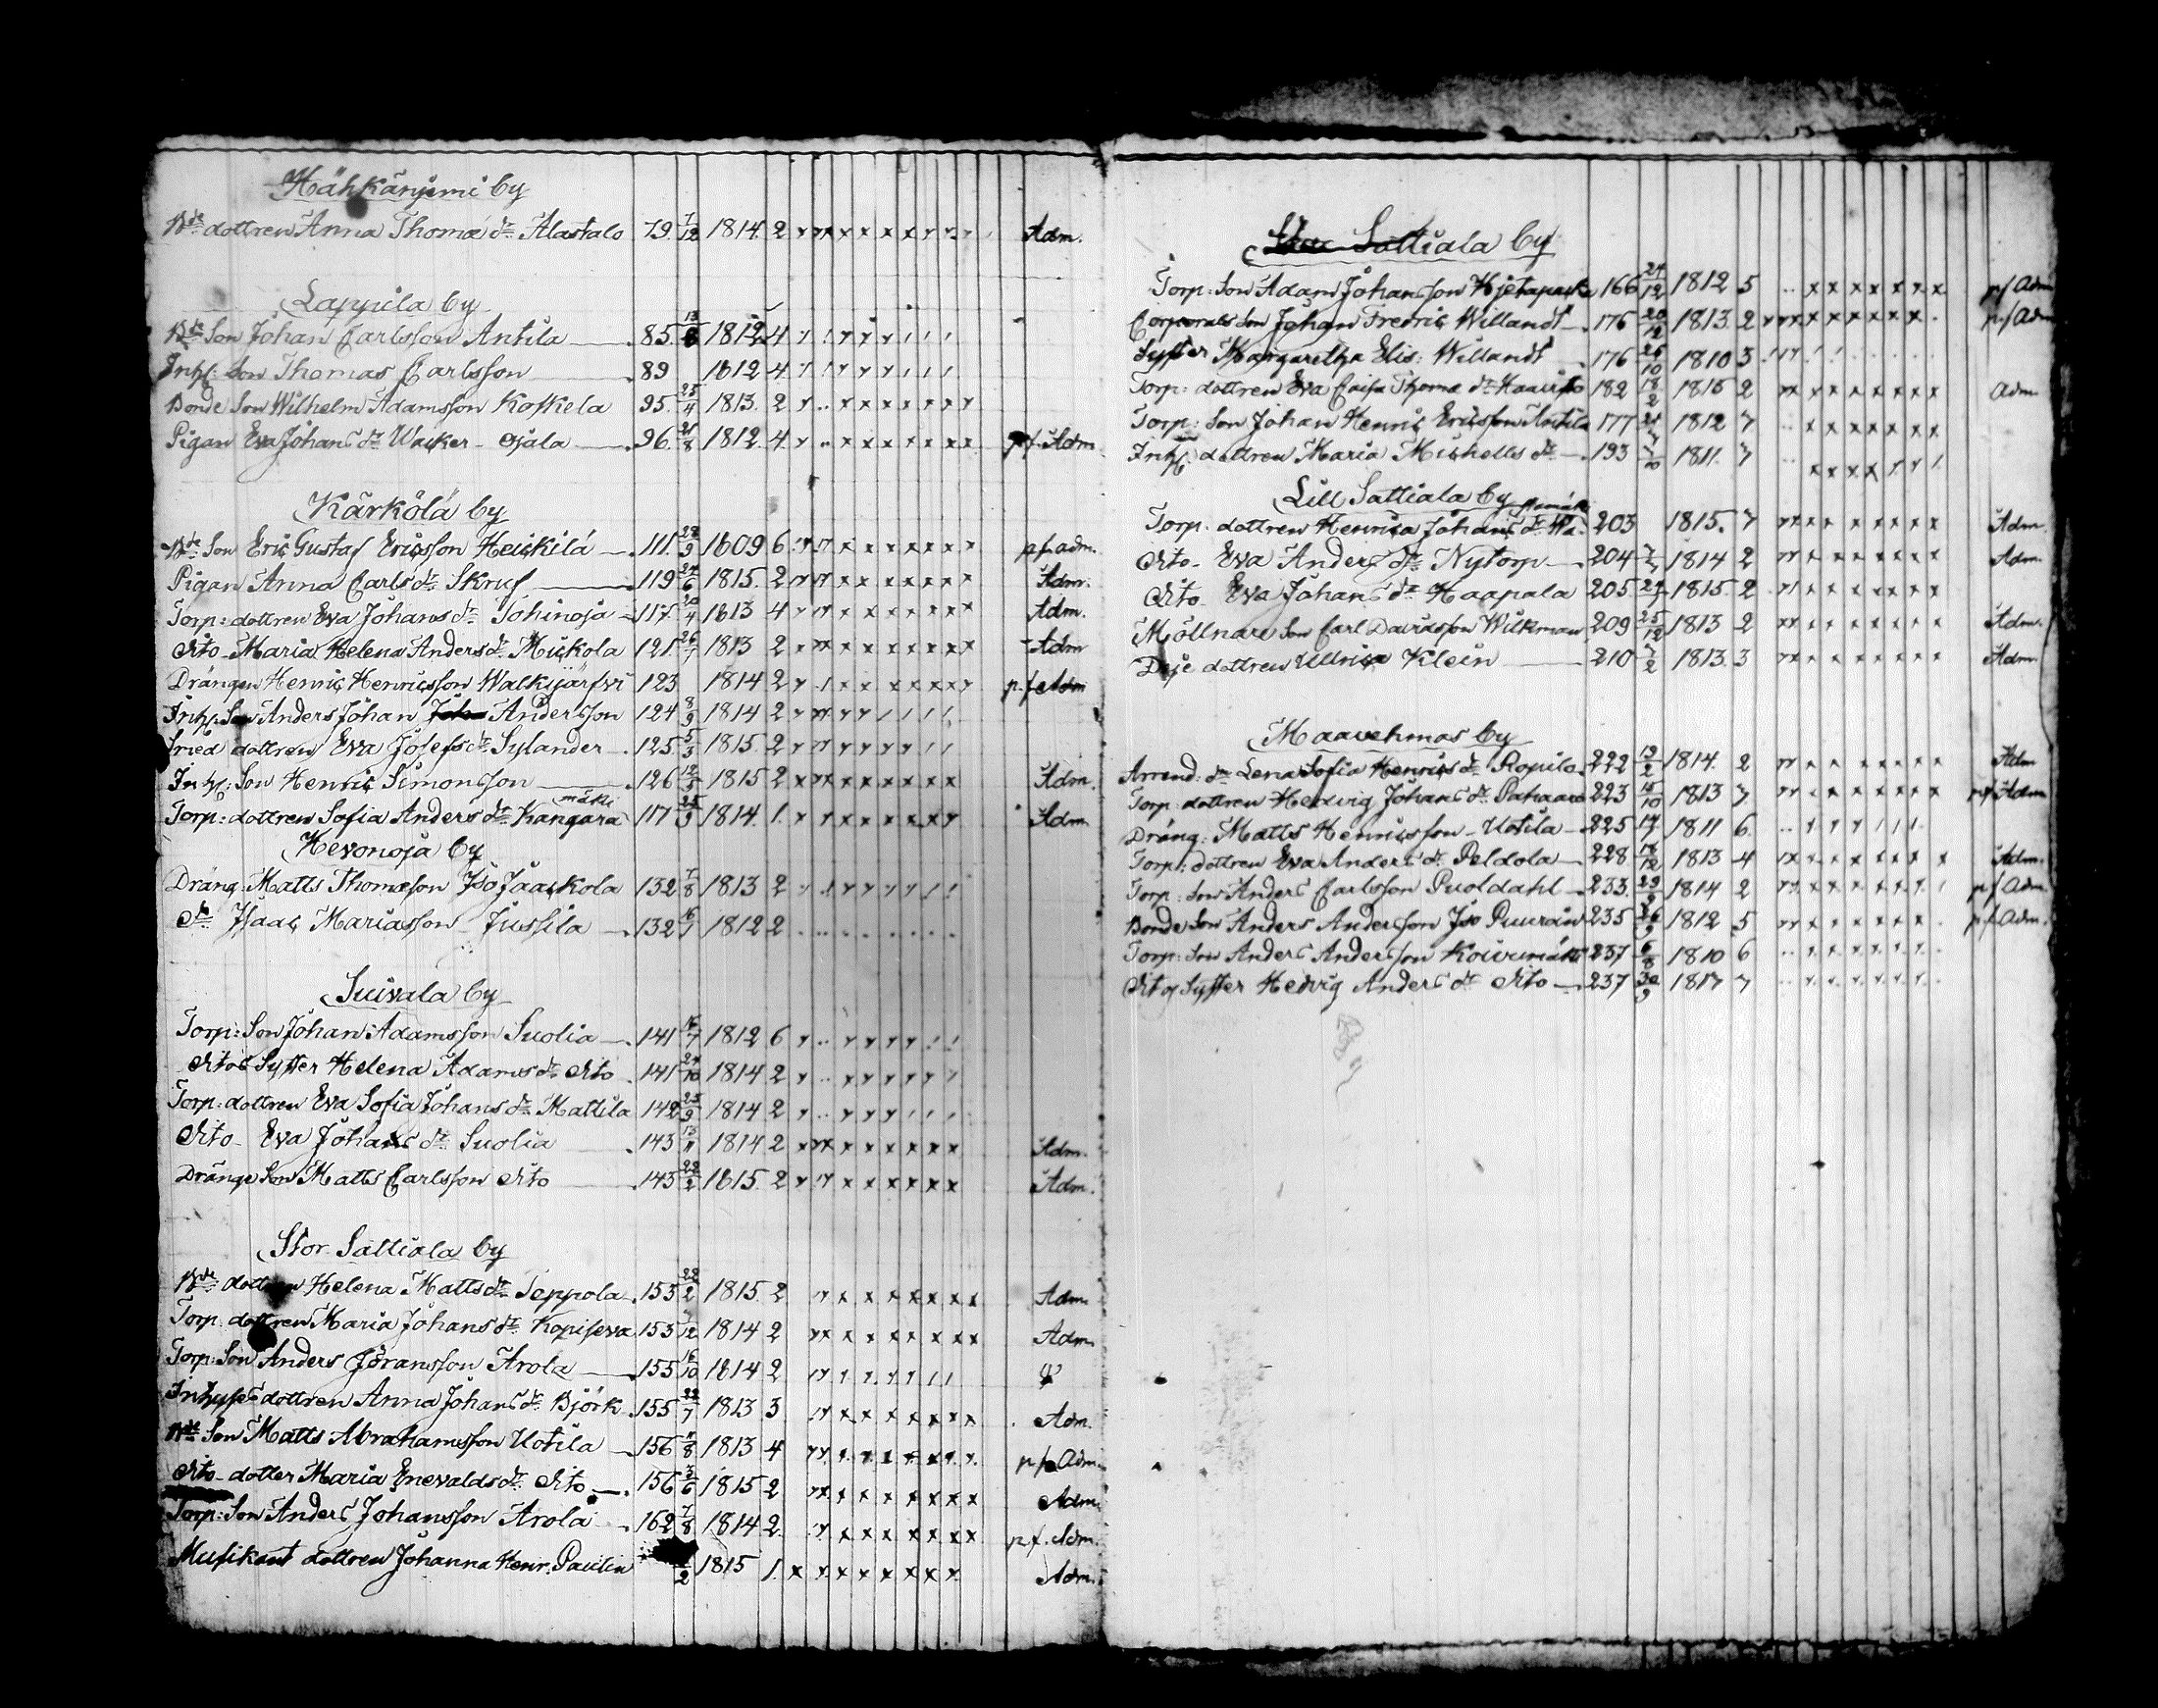 Hähkäniemi by
Bde dottren Anna Thomæ dr Alastalo 79. 7/12 1814. 2 Adm.
Lappila by
Bde Son Johan Carlsson Antila 85. 1812 4
Inhs: Son Thomas Carlsson 89 1812 4
Bonde Son Wilhelm Adamsson Koskela 95. 25/4 1813. 2
Pigan Eva Johans dr Wacker - Ojala 96. 21/8 1812. 4 p.f. Adm
Kärkölä by
Bde Son Eric Gustaf Ericsson Heickilä 111. 28/9 1809 6 p.f. adm.
Pigan Anna Carls dr Skruf 119 24/6 1815. 2 Adm.
Torp: dottren Eva Johans dr Tohinoja 117. 20/4 1813 4 Adm.
Dito - Maria Helena Anders dr Mickola 121. 26/7 1813 2 Adm
Drängen Henric Henricsson Walkjärfvi 123 1814 2 p.f. Adm
Inhs. Son Anders Johan Andersson 124 8/9 1814 2
dottren Eva Josefs dr Sylander 125 5/3 1815. 2
Inhs: Son Henric Simonsson 126 12/5 1815 2 Adm.
Torp: dottren Sofia Anders dr Kangara mäki 117 25/9 1814. 1. Adm.
Hevonoja by
Dräng. Matts Thomæson Iso Jaackola 132 7/8 1813 2
do Isaac Mariasson Jussila 132 16/7 1812 2
Suivala by
Torp: Son Johan Adamsson Suolia 141 16/7 1812 6
Ditos Syster Helena Adams dr dito 141 24/10 1814 2
Torp: dottren Eva Sofia Johans dr Mattila 142 25/9 1814 2
Dito - Eva Johans dr Suolia 143 13/11 1814 2 Adm.
Dränge Son Matts Carlsson dito 143 22/2 1815. 2 Adm.
Stor Sattiala by
Bde dottren Helena Matts dr Seppola 153 22/2 1815 2 Adm.
Torp. dottren Maria Johans dr Kopiseva 153 1814 2 Adm.
Torp: Son Anders Göransson Arola 155 16/10 1814 2
Inhyses dottren Anna Johans dr Björk 155 22/7 1813 3 Adm.
Bde Son Matts Abrahamsson Uotila 156 11/8 1813 4 p.f. Adm.
Dito - dotter Maria Enevalds dr dito 156 3/6 1815 2 Adm.
Torp: Son Anders Johansson Arola 162 7/8 1814 2. p.f. Adm.
Musikant dottren Johanna Henr. Paulin 1815 1. Adm.
Sattiala by
Torp: Son Adam Johansson 166 24/12 1812 5 p.f Adm
Corporals Son Johan Fredric Willandt 176 20/12 1813. 2 p.f Adm
Syster Margaretha Elis: Willandt 176 26/10 1810 3
Torp: dottren Eva Caisa Thomæ dr Haavisto 182 18/2 1815 2 Adm
Torp: Son Johan Henric Ericsson Antila 177 1812 7
Inhs: dottren Maria Michells dr 193 7/10 1811. 7
Lill Sattiala by
Torp. dottren Henrica Johans dr 203 1815. 7 Adm.
Dito - Eva Anders dr Nytorp 204 1814 2 Adm.
Dito - Eva Johans dr Haapala 205 1815. 2
Möllnare Son Carl Davidsson Wikman 209 25/12 1813 2 Adm.
Deje dottren Ullrica Klein 210 7/2 1813. 3 Adm.
Maavehmas by
Arrend: dr Lena Sofia Henrics dr Ropilo 222 19/2 1814. 2 Adm
Torp: dottren Hedvig Johans dr 223 15/10 1813 7 p.f Adm
Dräng: Matts Henricsson - Uotila 225 1811 6.
Torp: dottren Eva Anders dr Peldola 228 18/12 1813 4 Adm.
Torp: Son Anders Carlsson Puoldahl 233. 1814 2 p.f Adm.
Bonde Son Anders Andersson Iso 235 1812 5 p.f Adm.
Torp: Son Anders Andersson Koivumäki 237 6/8 1810 6
Ditos Syster Hedvig Anders dr dito 237 30/9 1817 7